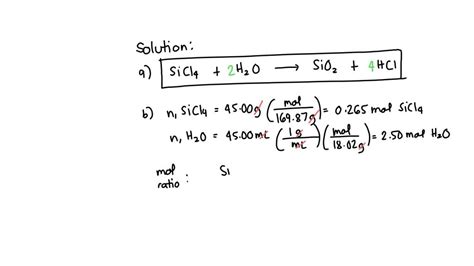 Solution:
a) SiCl₄ + 2H₂O ⟶ SiO₂ + 4HCl
b) n, SiCl₄ = 45.00g (mol / 169.87g) = 0.265 mol SiCl₄
n, H₂O = 45.00mL (1 g / mL) (mol / 18.02g) = 2.50 mol H₂O
mol ratio : Si